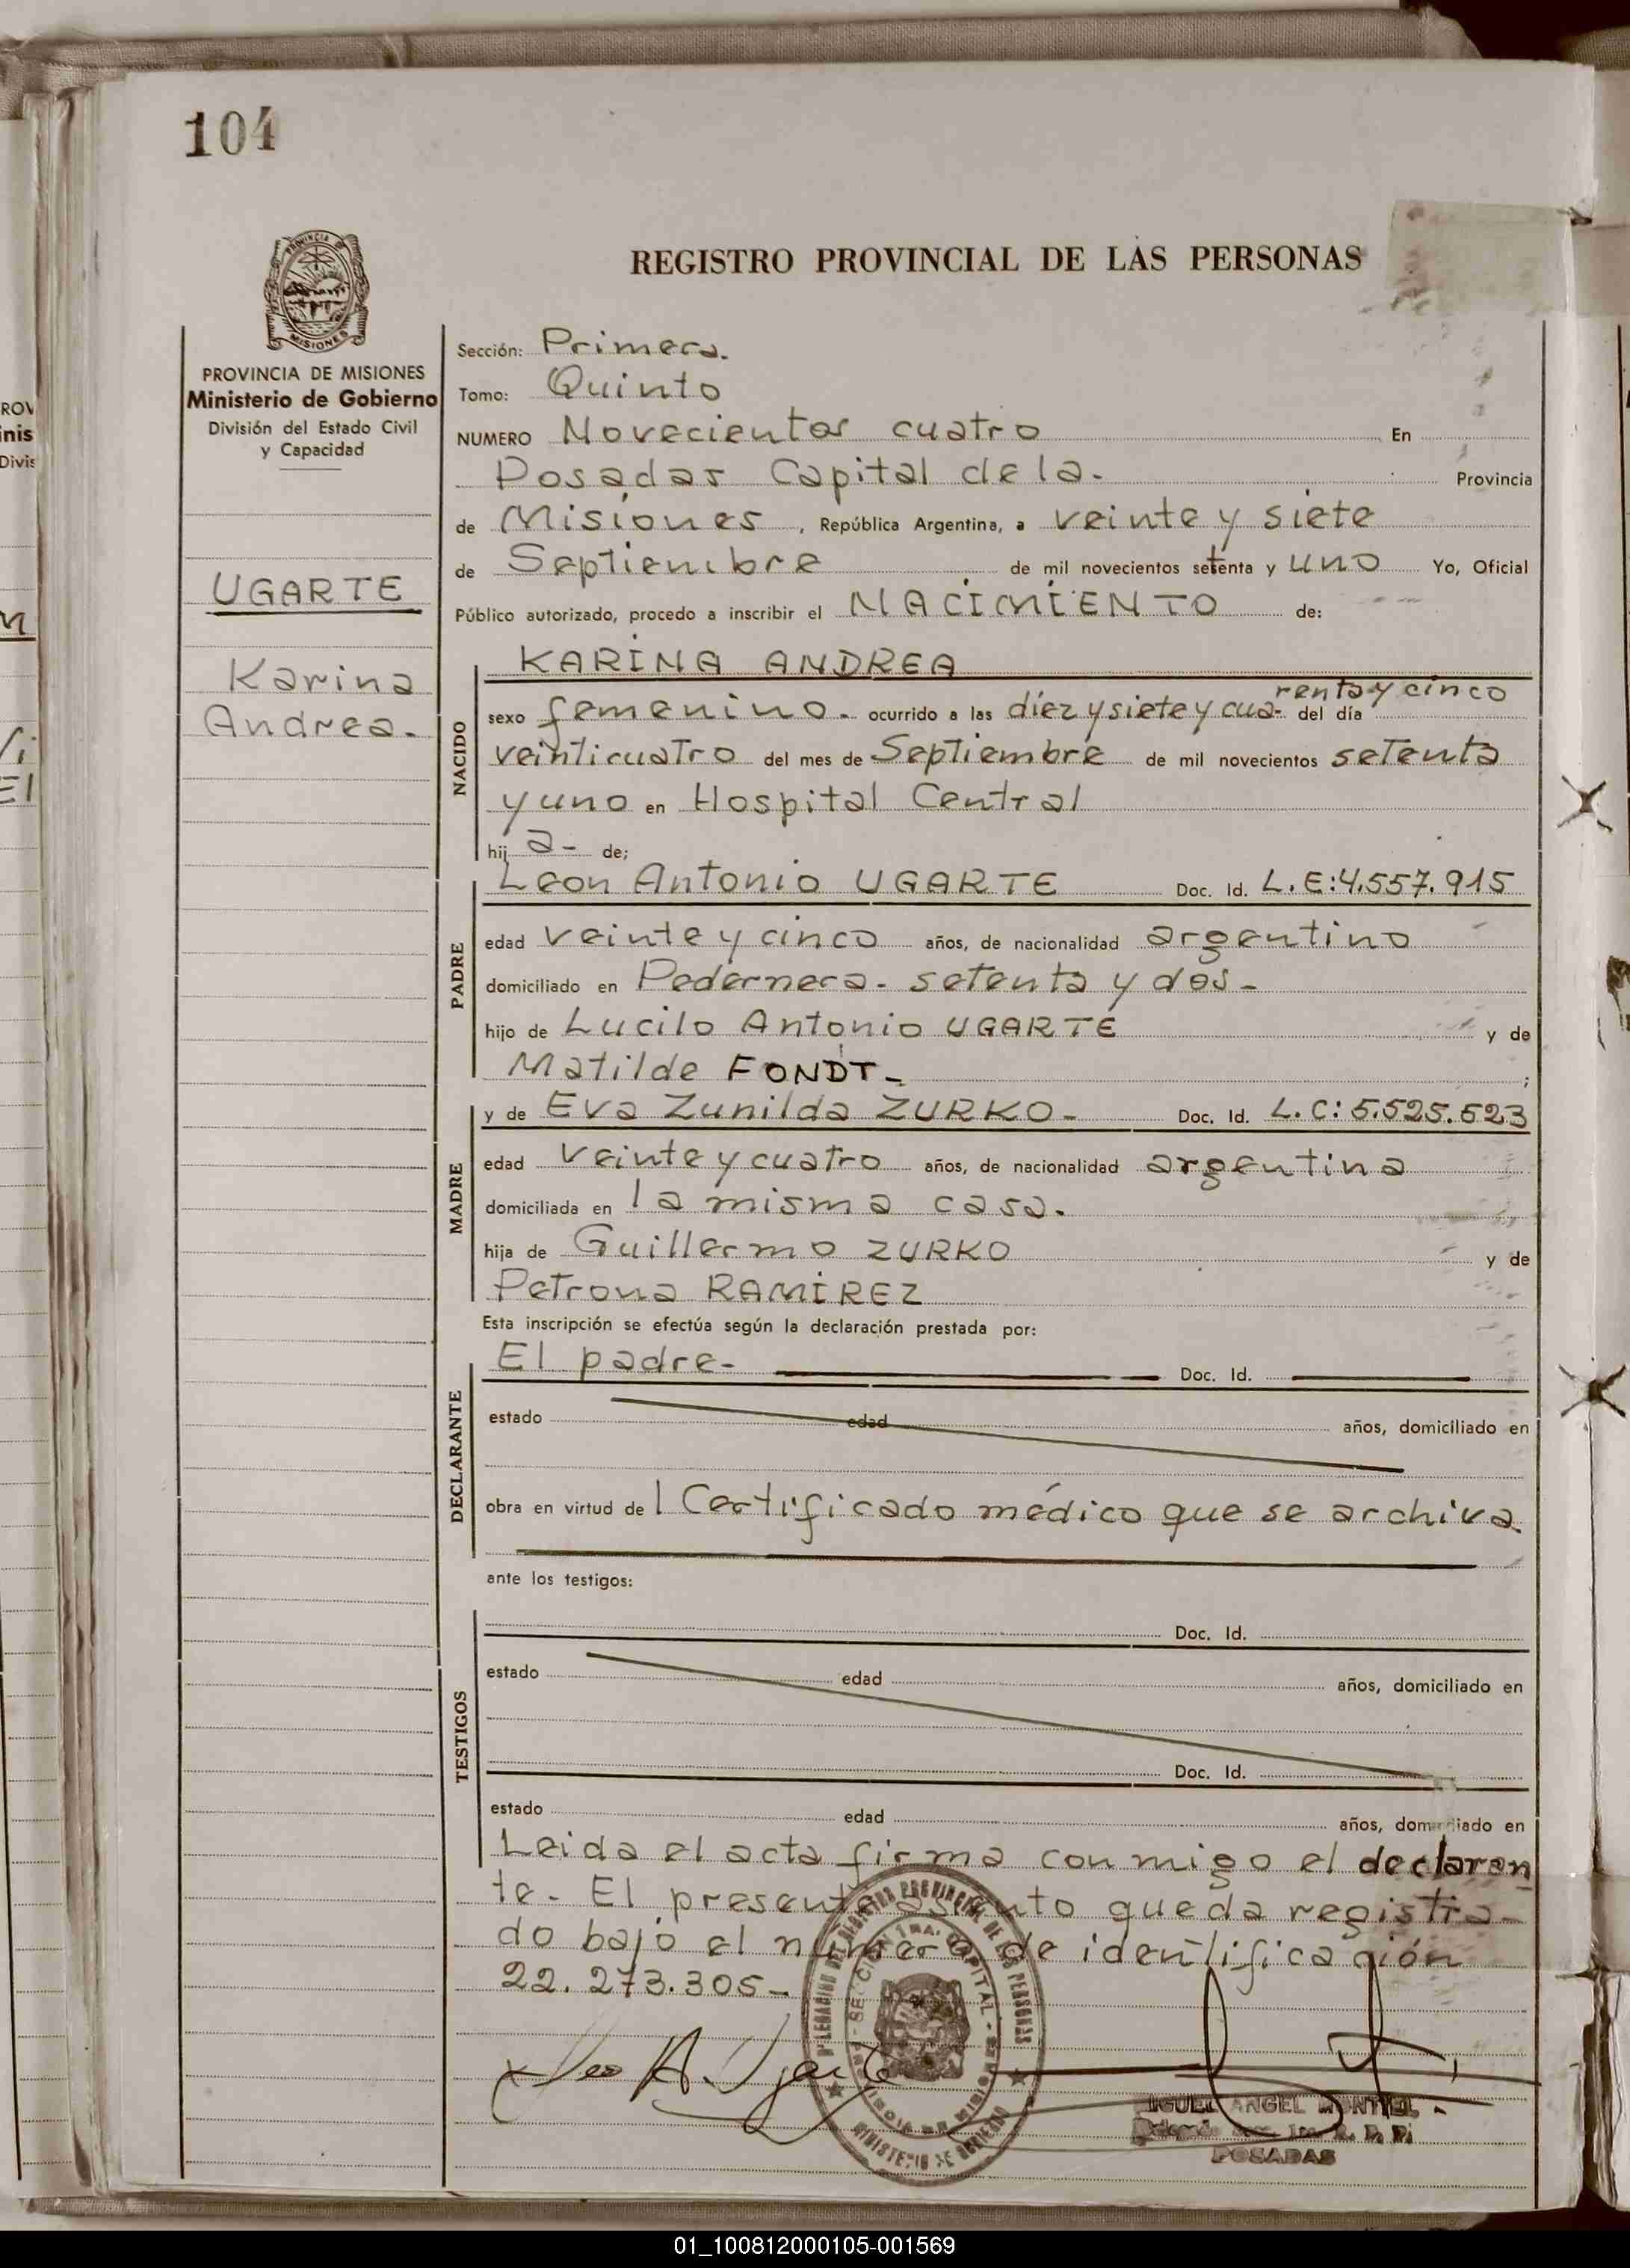 104
REGISTRO PROVINCIAL DE LAS PERSONAS
PROVINCIA DE MISIONES
Ministerio de Gobierno
División del Estado Civil
y Capacidad
UGARTE
Karina
Andrea.
Sección: Primera.
Tomo: Quinto
NUMERO Novecientos cuatro En
Posadas Capital de la. Provincia
de Misiones, República Argentina, a veinte y siete
de Septiembre de mil novecientos setenta y uno Yo, Oficial
Público autorizado, procedo a inscribir el NACIMIENTO de:
NACIDO
KARINA ANDREA
renta y cinco
sexo femenino. ocurrido a las diez y siete y cua- del día
veinticuatro del mes de Septiembre de mil novecientos setenta
y uno en Hospital Central
hij a- de;
PADRE
Leon Antonio UGARTE Doc. Id. L.E:4.557.915
edad veinte y cinco años, de nacionalidad argentino
domiciliado en Pedernera. setenta y dos-
hijo de Lucilo Antonio UGARTE y de
Matilde FONDT- ;
MADRE
y de Eva Zunilda ZURKO- Doc. Id. L.C: 5.525.523
edad veinte y cuatro años, de nacionalidad argentina
domiciliada en la misma casa.
hija de Guillermo ZURKO y de
Petrona RAMIREZ
Esta inscripción se efectúa según la declaración prestada por:
DECLARANTE
El padre- Doc. Id.
estado edad años, domiciliado en
obra en virtud de l Certificado médico que se archiva.
ante los testigos:
TESTIGOS
Doc. Id.
estado edad años, domiciliado en
Doc. Id.
estado edad años, domiciliado en
Leida el acta firma conmigo el declaran
te. El presente asiento queda registra-
do bajo el número de identificación
22.273.305-
Leo A. Ugarte
MIGUEL ANGEL MONTIEL
POSADAS
01_100812000105-001569